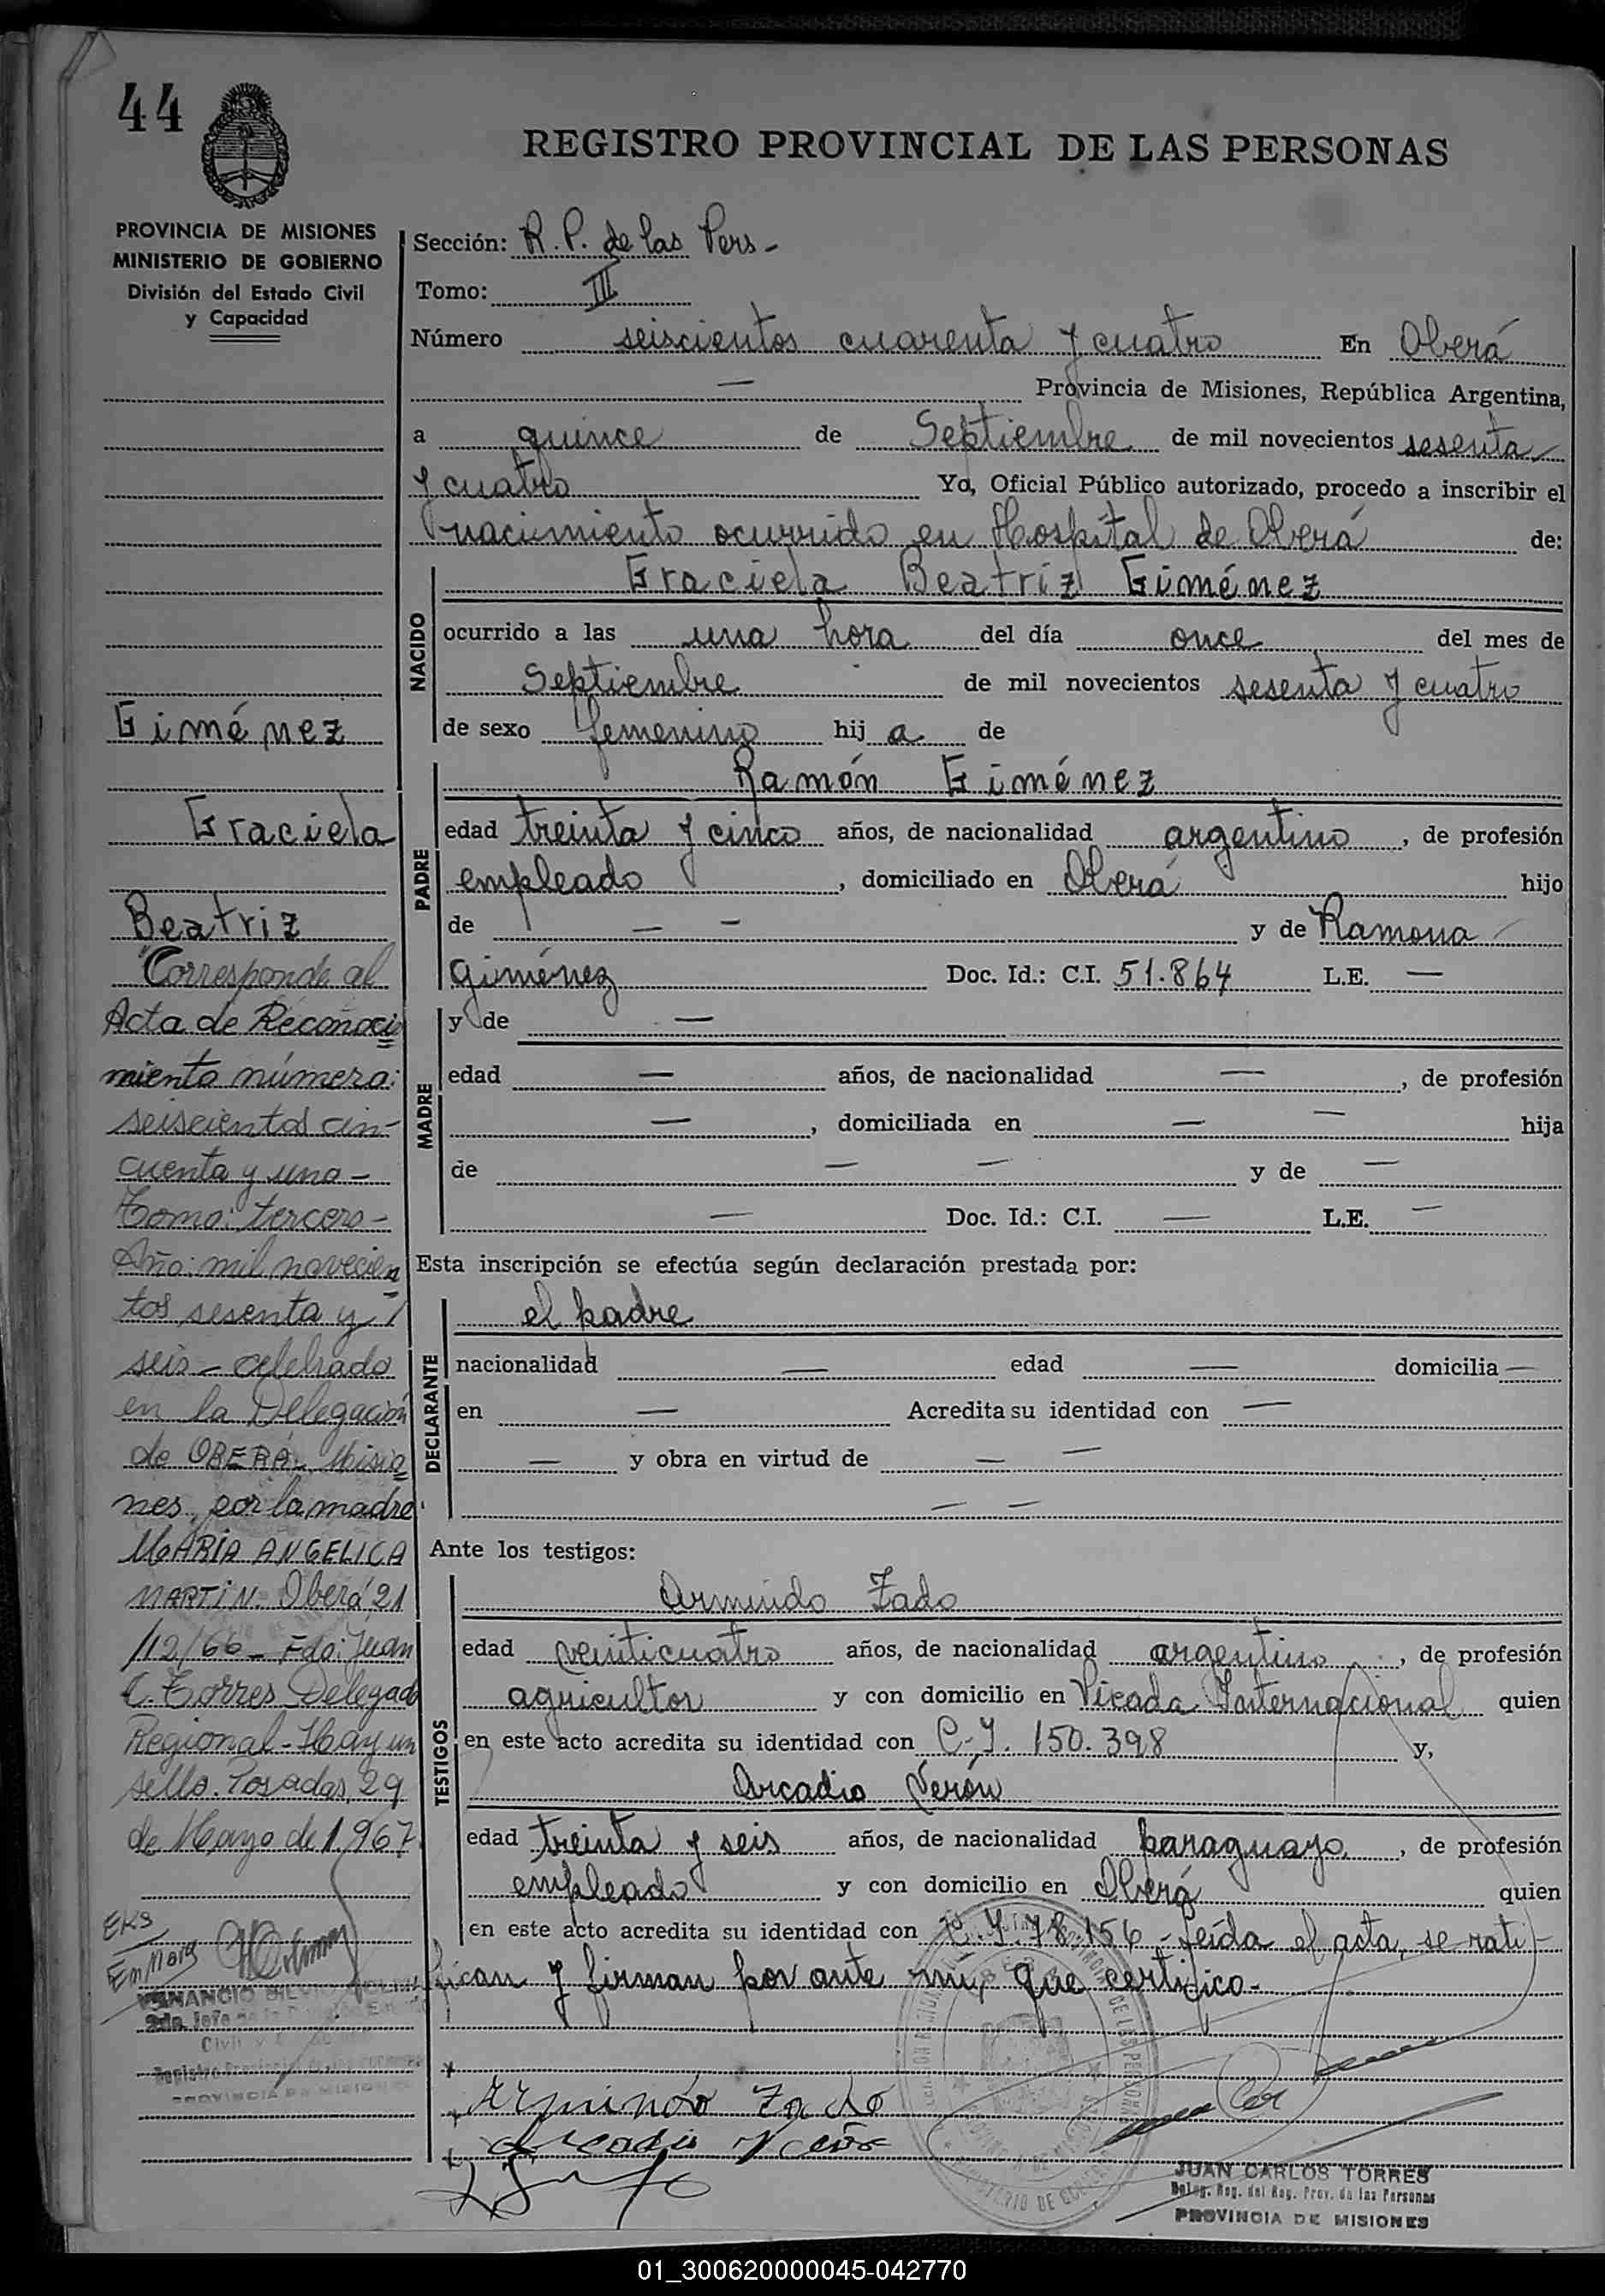 44
REGISTRO PROVINCIAL DE LAS PERSONAS
PROVINCIA DE MISIONES
MINISTERIO DE GOBIERNO
División del Estado Civil
y Capacidad
Sección: R. P. de las Pers -
Tomo: III
Número seiscientos cuarenta y cuatro En Oberá
— Provincia de Misiones, República Argentina,
a quince de Septiembre de mil novecientos sesenta
y cuatro Yo, Oficial Público autorizado, procedo a inscribir el
nacimiento ocurrido en Hospital de Oberá de:
NACIDO
Graciela Beatriz Giménez
ocurrido a las una hora del día once del mes de
Septiembre de mil novecientos sesenta y cuatro
de sexo femenino hij a de
PADRE
Ramón Giménez
edad treinta y cinco años, de nacionalidad argentino, de profesión
empleado, domiciliado en Oberá hijo
de — — y de Ramona
Giménez Doc. Id.: C.I. 51.864 L.E. —
MADRE
y de —
edad — años, de nacionalidad —, de profesión
—, domiciliada en — — hija
de — — y de —
— Doc. Id.: C.I. — L.E. —
Esta inscripción se efectúa según declaración prestada por:
DECLARANTE
el padre
nacionalidad — edad — domicilia —
en — Acredita su identidad con —
— y obra en virtud de —
— —
Ante los testigos:
TESTIGOS
Armindo Zado
edad veinticuatro años, de nacionalidad argentino, de profesión
agricultor y con domicilio en Picada Internacional quien
en este acto acredita su identidad con C.I. 150.398 y,
Arcadio Verón
edad treinta y seis años, de nacionalidad paraguayo, de profesión
empleado y con domicilio en Oberá quien
en este acto acredita su identidad con C.I. 78.156 - Leída el acta, se rati-
fican y firman por ante mi, que certifico.-
Armindo Zado
Arcadio Verón
JUAN CARLOS TORRES
Deleg. Reg. del Reg. Prov. de las Personas
PROVINCIA DE MISIONES
Giménez
Graciela
Beatriz
Corresponde al
Acta de Reconoci
miento número:
seiscientos cin-
cuenta y uno -
Tomo: tercero -
Año: mil novecien
tos sesenta y
seis - celebrado
en la Delegación
de OBERÁ, Misio
nes, por la madre:
MARIA ANGELICA
MARTIN. Oberá 21
/12/66 - Fdo: Juan
C. Torres Delegado
Regional - Hay un
sello. Posadas, 29
de Mayo de 1.967
EKS
VENANCIO SILVIO
2do. Jefe de la
Civil y
Registro Provincial de las Personas
PROVINCIA DE MISIONES
01_300620000045-042770